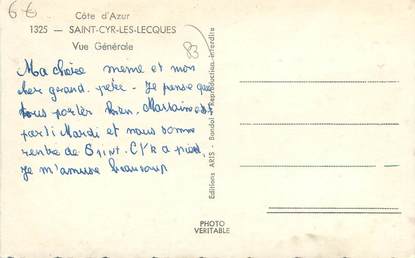 6€
Côte d'Azur
1325 - SAINT-CYR-LES-LECQUES
Vue Générale
83
Ma chère mémé et mon
cher grand-père. Je pense que
vous porter bien. est
parti Mardi et nous somme
rentre de Saint. Cyr a pied.
Je m'amuse beaucoup
Editions ARIS - Bandol - Reproduction interdite
PHOTO
VERITABLE